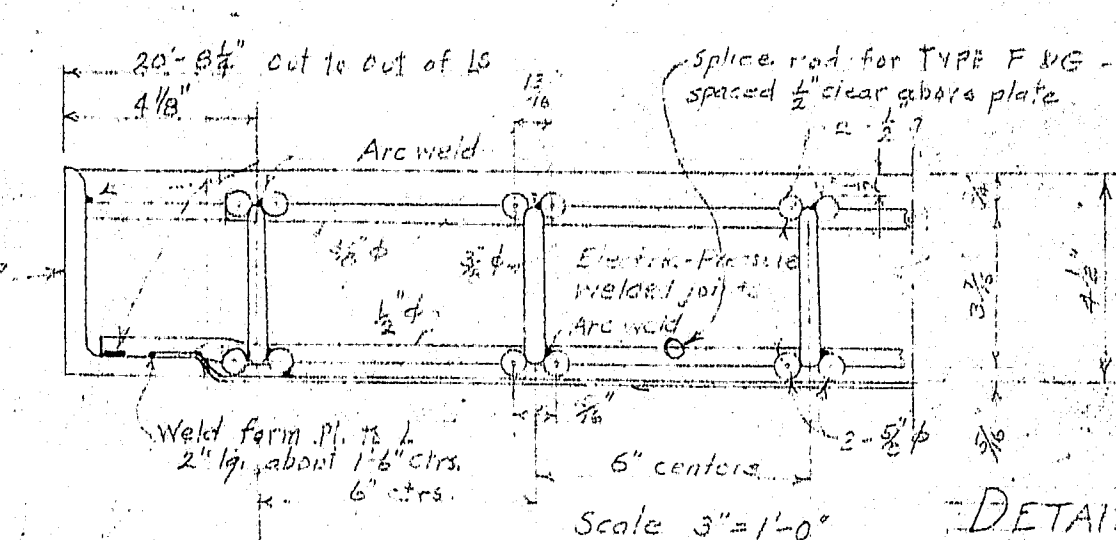 20'-8¼" out to out of Ls
4⅛"
13/16"
Splice rod for TYPE F & G -
spaced ½" clear above plate
Arc weld
½"
¾
⅜" φ
Electric-Pressure
welded joints
½" φ
Arc weld
3 7/16
4½"
Weld form Pl. to L
2" lg. about 1'-6" ctrs.
6" ctrs.
6" centers
2-⅝" φ
5/16
Scale 3"=1'-0"
DETAI